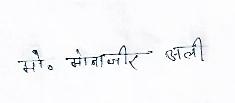 मो० मोनाजीर अली